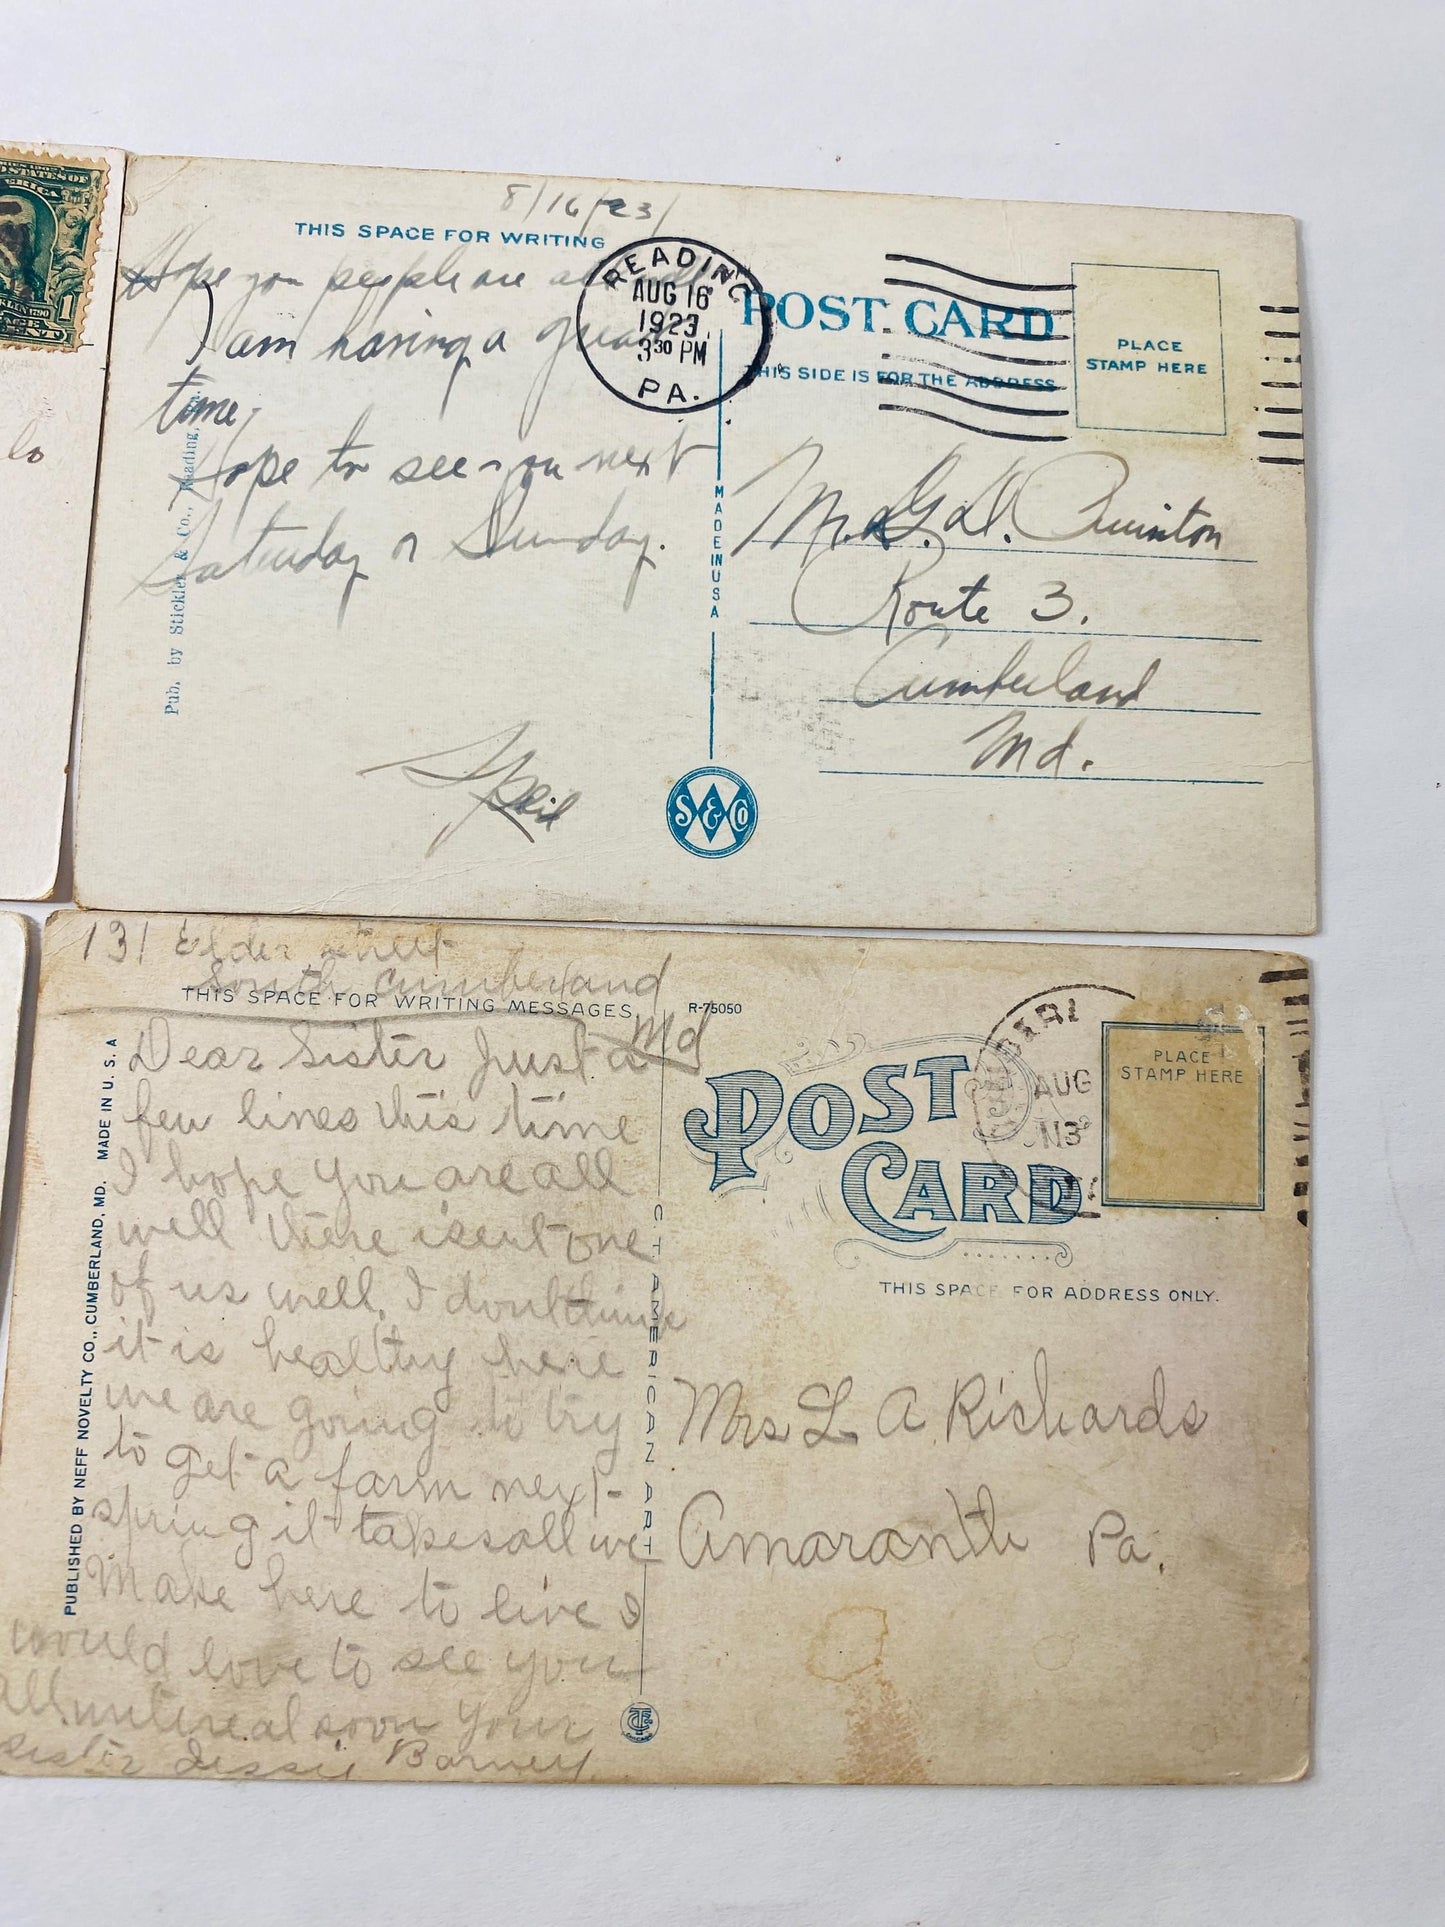 1
CENT
lo
8/16/23/
THIS SPACE FOR WRITING
Hope you people are all well
I am having a great
time,
Hope to see you next
Saturday or Sunday.
READING
AUG 16
1923
3 30 PM
PA.
POST CARD
THIS SIDE IS FOR THE ADDRESS
PLACE
STAMP HERE
Pub. by Stickler & Co., Reading,
MADE IN USA
Route 3.
Cumberland
Md.
S & Co
131 Elder street
South Cumberland
Md
THIS SPACE FOR WRITING MESSAGES.
R-75050
Dear Sister Just a
few lines this time
I hope you are all
well there isent one
of us well. I dont think
it is healthy here
we are going to try
to get a farm next
spring it takes all we
Make here to live I
would love to see you
All
real soon your
sister Jessie Barney
PUBLISHED BY NEFF NOVELTY CO., CUMBERLAND, MD. MADE IN U. S. A
C. T. AMERICAN ART
POST
CARD
AUG
PLACE
STAMP HERE
THIS SPACE FOR ADDRESS ONLY.
Mrs L A Richards
Amaranth Pa.